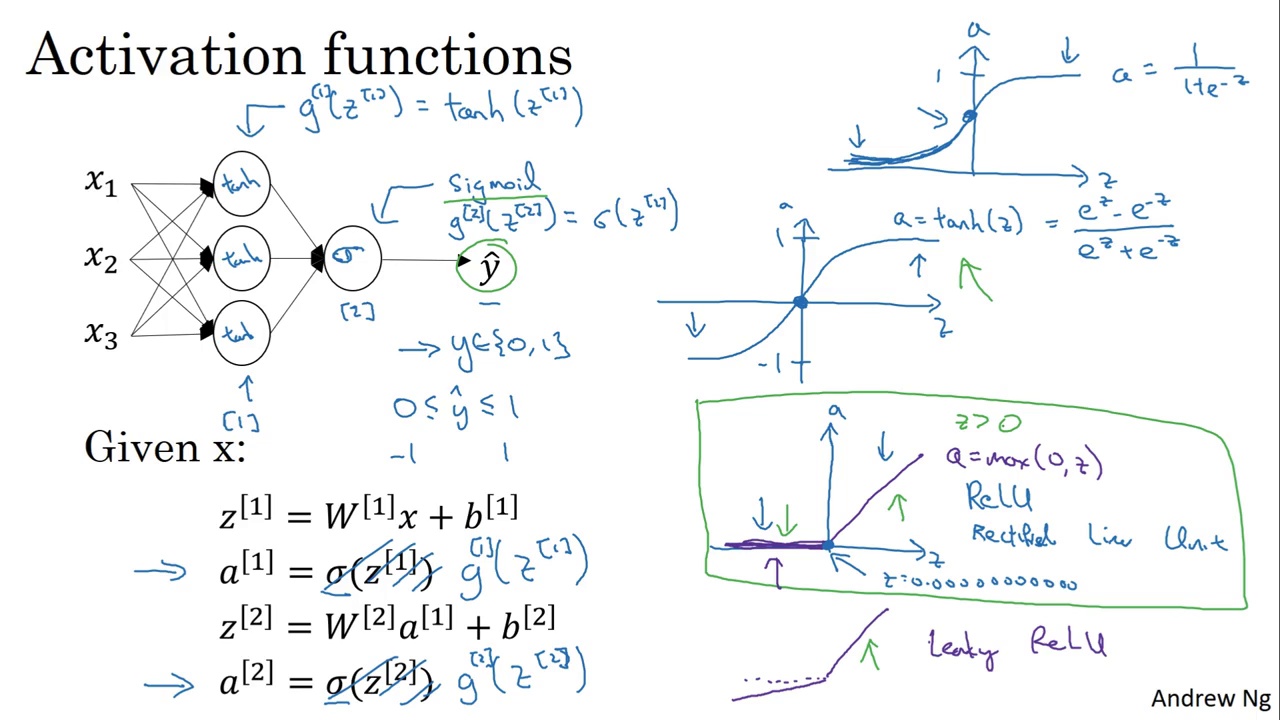 Activation functions
g^[1](z^[1]) = tanh(z^[1])
x₁
x₂
x₃
tanh
tanh
tanh
[1]
σ
[2]
sigmoid
g^[2](z^[2]) = σ(z^[2])
ŷ
→ y∈{0,1}
0 ≤ ŷ ≤ 1
-1 1
Given x:
z^[1] = W^[1]x + b^[1]
→ a^[1] = σ(z^[1]) g^[1](z^[1])
z^[2] = W^[2]a^[1] + b^[2]
→ a^[2] = σ(z^[2]) g^[2](z^[2])
a
1
z
a = 1/(1+e^-z)
a
1
-1
z
a = tanh(z) = (e^z - e^-z)/(e^z + e^-z)
a
z
z > 0
a = max(0,z)
ReLU
Rectified Linear Unit
z=0.00000000000
Leaky ReLU
Andrew Ng